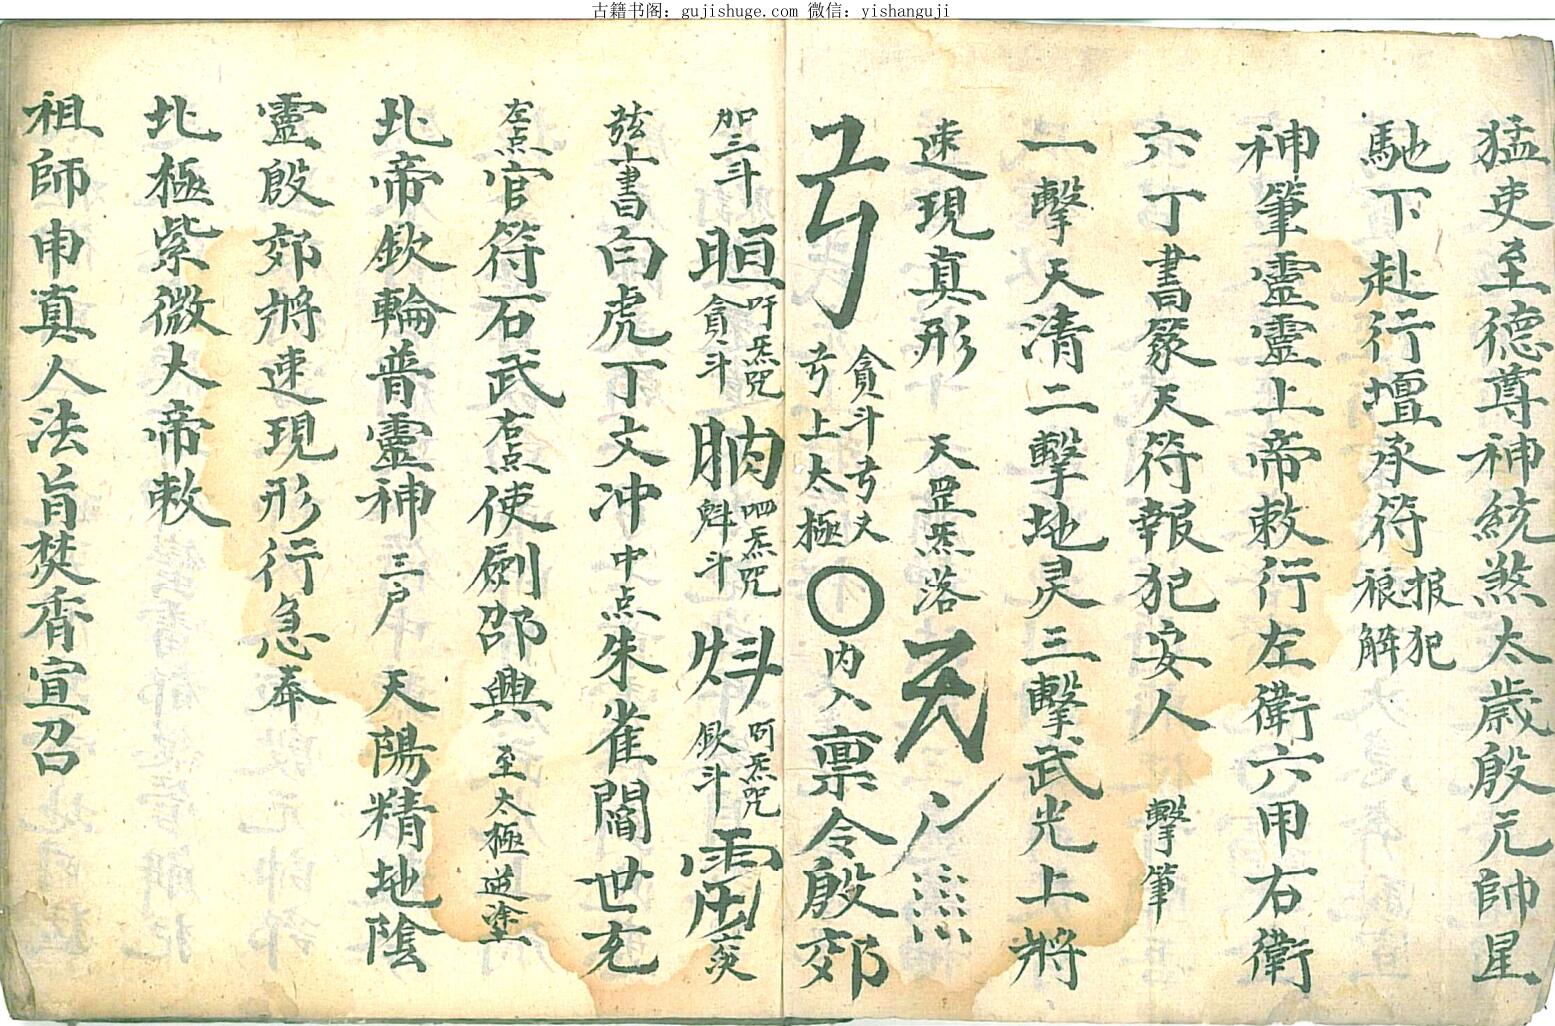 古籍书阁：gujishuge.com 微信：yishanguji
猛吏至德尊神統煞太歲殷元帥星
馳下赴行壇承符报犯根解
神筆靈靈上帝敕行左衛六甲右衛
六丁書篆天符報犯安人 擊筆
一擊天清二擊地灵三擊武光上將
速現真形 天罡炁落
貪斗 上太極 〇内入 禀令殷郊
加三斗 吽炁咒 貪斗 呬炁咒 魁斗 呵炁咒 欽斗
弦上書 白虎丁文冲 中点 朱雀閻世充
左点 官符石武 右点 使劍邵興 至太極逆塗
北帝欽輪普靈神 三户 天陽精地陰
靈殷郊將速現形行急奉
北極紫微大帝敕
祖師申真人法旨焚香宣召